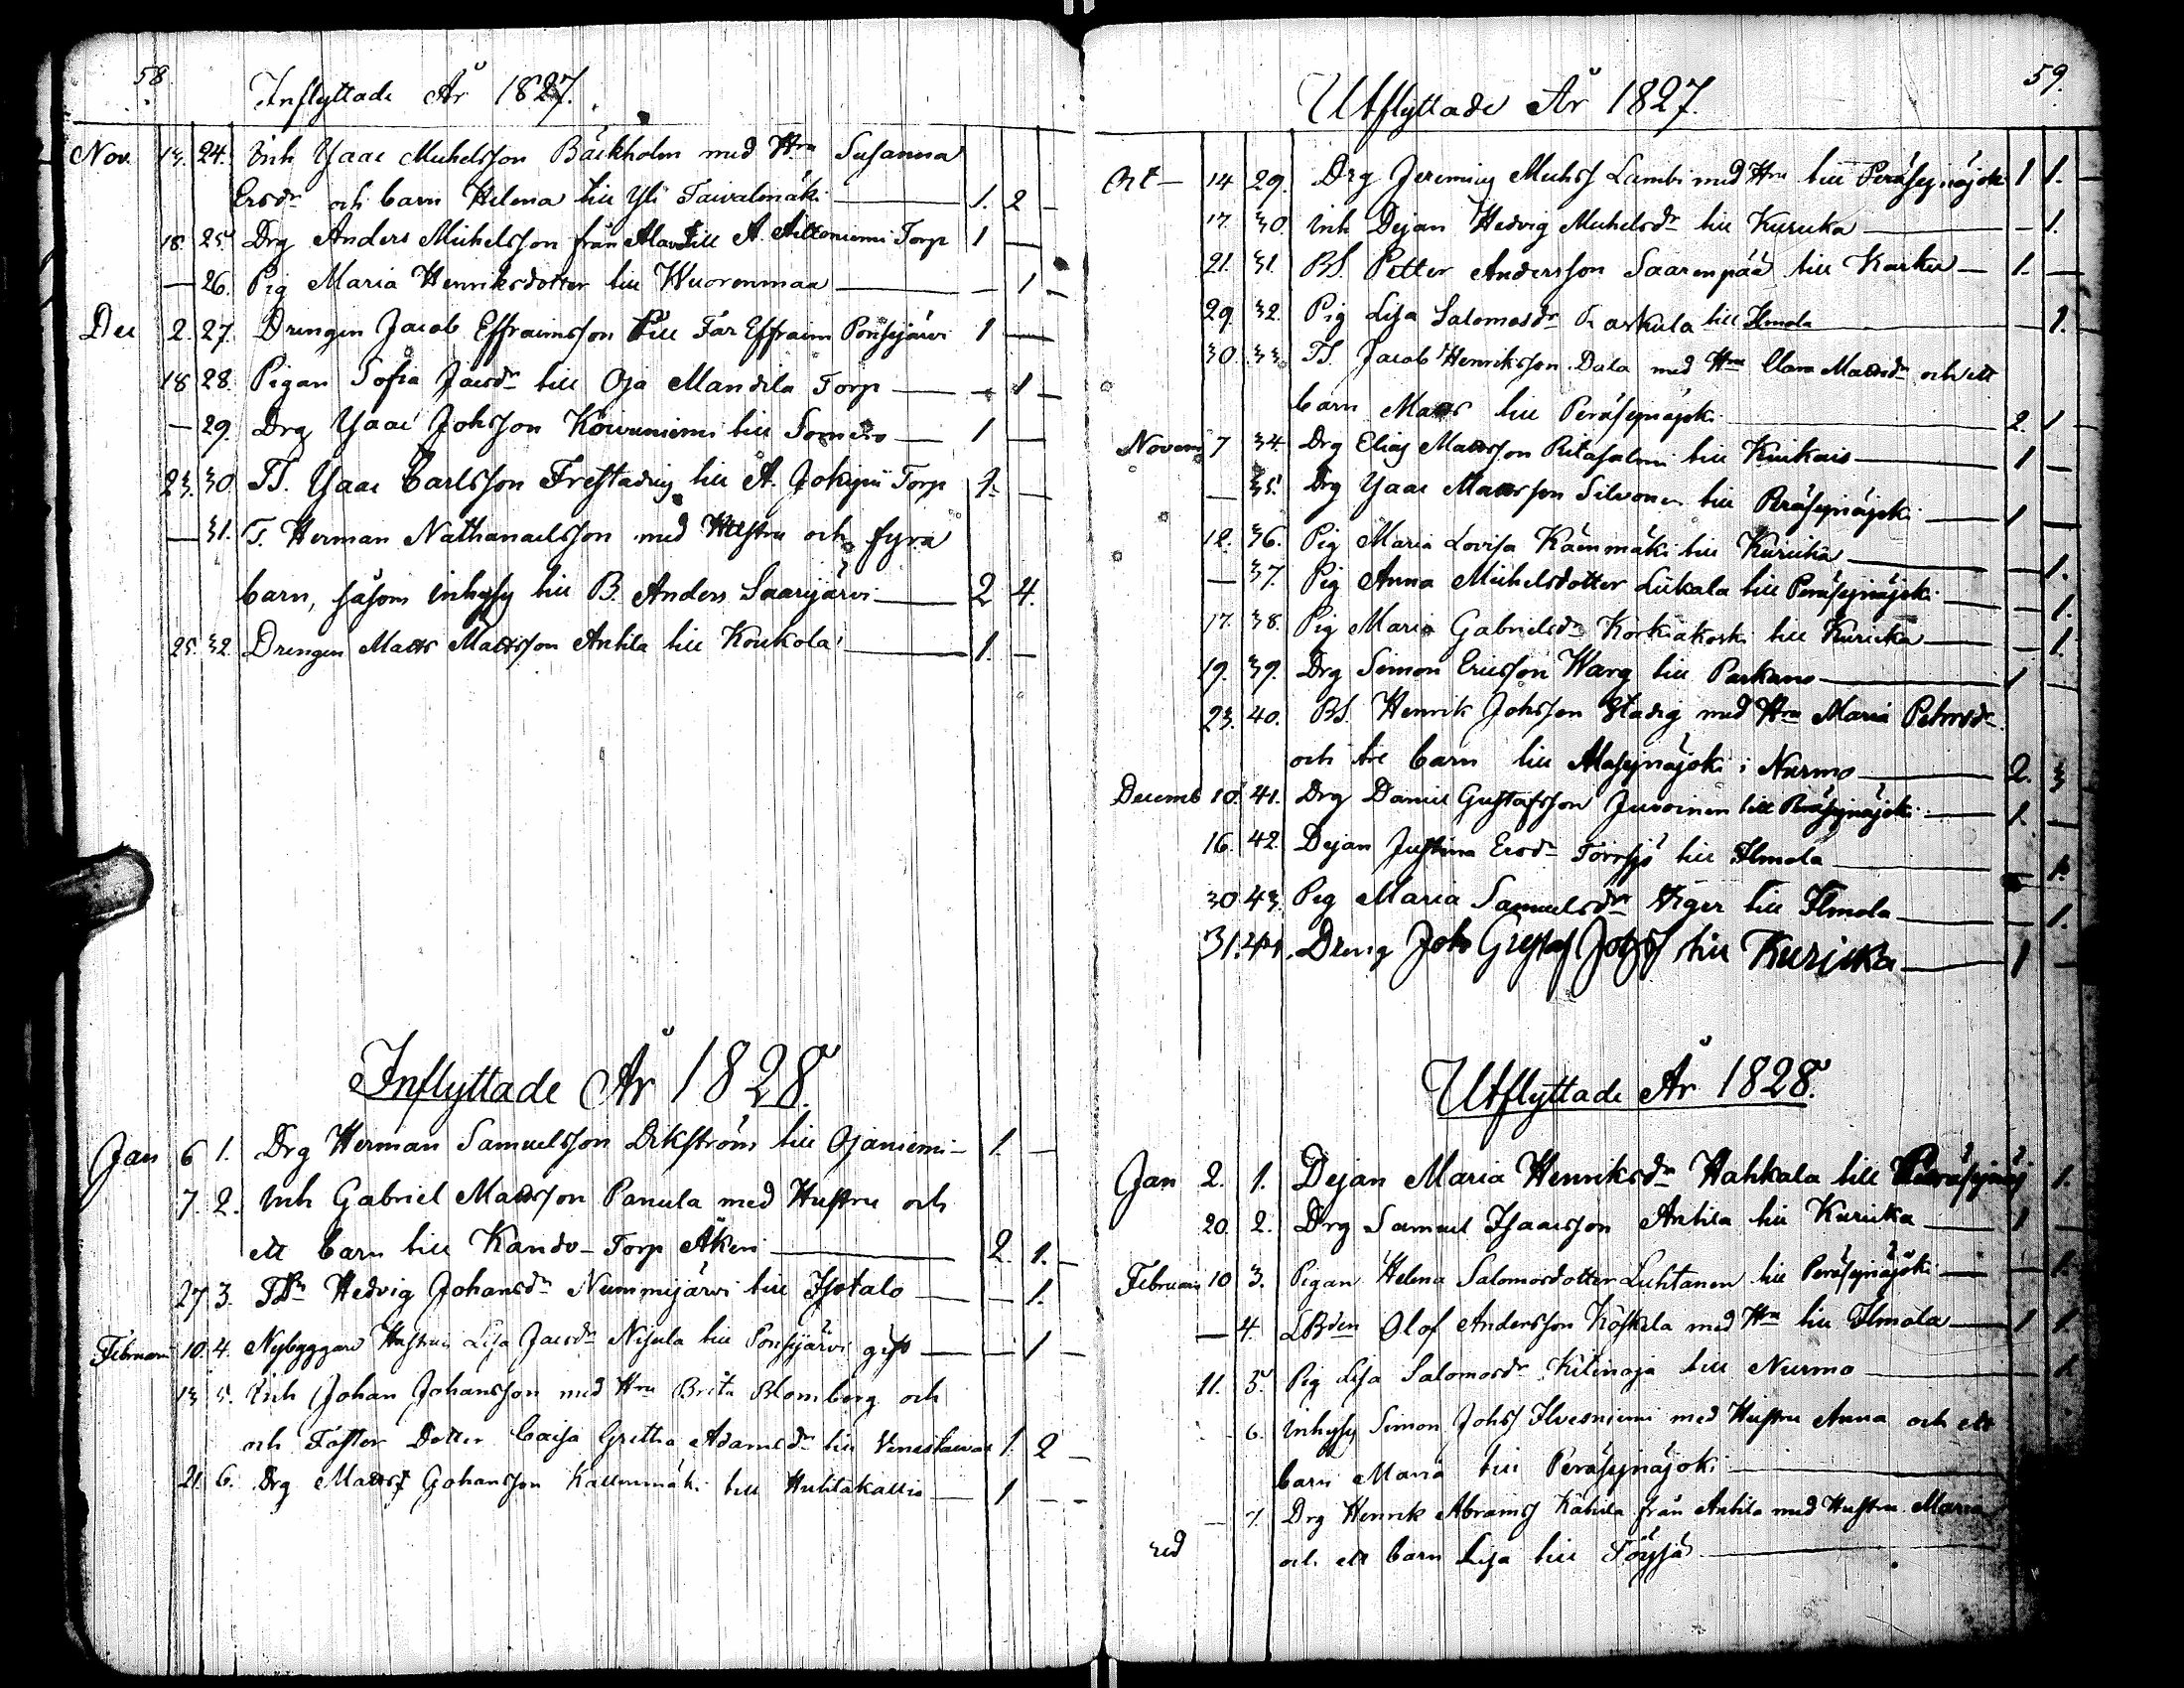 58.
Inflyttade År 1827.
Nov. 13. 24. Inh Ysaac Michelsson Bäckholm med Hru Susanna
Ersdr och barn Helena till Yli Taivalmäki — 1. 2 —
18. 25. Drg Anders Michelsson från Alavo till A. Aittoniemi Torp 1 —
— 26. Pig Maria Henriksdotter till Wuorenmaa — — 1 —
Dec 2. 27. Drengen Jacob Effraimsson till Far Effraim Ponsijärvi 1 —
18 28. Pigan Sofia Jacsdr till Oja Mandila Torp — — 1 —
— 29. Drg Ysaac Johsson Koivuniemi till Somero — 1 —
23. 30. TS. Ysaac Carlsson Frestadius till A. Jokipii Torp 1. —
— 31. T. Herman Nathanaelsson med Hustru och fyra
barn, såsom inhysg till B. Anders Saarijärvi — 2 4.
25. 32. Drengen Matts Mattsson Antila till Koukola — 1. —
Inflyttade År 1828.
Jan 6 1. Drg Herman Samuelsson Ekström till Ojaniemi — 1. —
7. 2. Inh Gabriel Mattsson Panula med Hustru och
ett barn till Kando Torp Åkeri — 2. 1. —
27 3. TDr Hedvig Johansdr Nummijärvi till Isotalo — — 1.
Februari 10. 4. Nybyggare Hustrun Lisa Jacsdr Nisula till Ponsijärvi gift — — 1 —
13 5. Inh Johan Johansson med Hru Brita Blomberg och
och Foster Dotter Caisa Gretha Adamsdr till 1. 2 —
21. 6. Drg Matts Johansson Kallenmäki till Huhtakallio — 1 — —
59.
Utflyttade År 1827.
Oct — 14 29. Drg Jeremias Michss Lambi med Hru till Peräseinäjoki 1 1. —
17. 30. Inh Dejan Hedvig Michelsdr till Kuricka — — 1.
21. 31. BS. Petter Andersson Saarenpää till Karku — 1. —
29. 32. Pig Lisa Salomosdr Parkula till Ilmola — 1.
30. 33. TS. Jacob Henriksson Dala med Hru Clara Mattsdr och ett
barn Matts till Peräseinäjoki — 2. 1 —
Novem 7 34. Drg Elias Mattsson Ritasalmi till Kiukais — 1 —
— 35. Drg Ysaac Mattsson Silvonen till Peräseinäjoki — 1 —
12. 36. Pig Maria Lovisa Käenmäki till Kuricka — — 1.
— 37. Pig Anna Michelsdotter Liikala till Peräseinäjoki — — 1.
17. 38. Pig Maria Gabrielsdr Korkiakoski till Kuricka — — 1.
19. 39. Drg Simon Ericsson Warg till Parkano — 1 —
23. 40. BS. Henrik Johsson Stadig med Hru Maria Petersdr
och tre barn till Alaseinäjoki i Nurmo — 2. 3
Decemb 10. 41. Drg Daniel Gustafsson Juvoinen till Peräseinäjoki — 1. —
16. 42. Dejan Justina Ersdr till Ilmola — 1.
30 43. Pig Maria Samuelsdr Tiger till Ilmola — — 1.
31. 44. Dreng Joh Gustaf Johss till Kuricka — 1 —
Utflyttade År 1828.
Jan 2. 1. Dejan Maria Henriksdr Hahkala till Peräseinäj 1.
20. 2. Drg Samuel Isaacsson Antila till Kuricka — 1 —
Februari 10 3. Pigan Helena Salomosdotter Luhtanen till Peräseinäjoki — — 1.
— 4. LBden Olof Andersson Koskela med Hru till Ilmola — 1 1.
11. 5. Pig Lisa Salomosdr Kitinoja till Nurmo — 1.
6. Inhysg Simon Johss Ilvesniemi med Hustru Anna och ett
barn Maria till Peräseinäjoki —
— 7. Drg Henrik Abramss Kahila från Antila med Hustru Maria
och ett barn Lisa till Töysä —